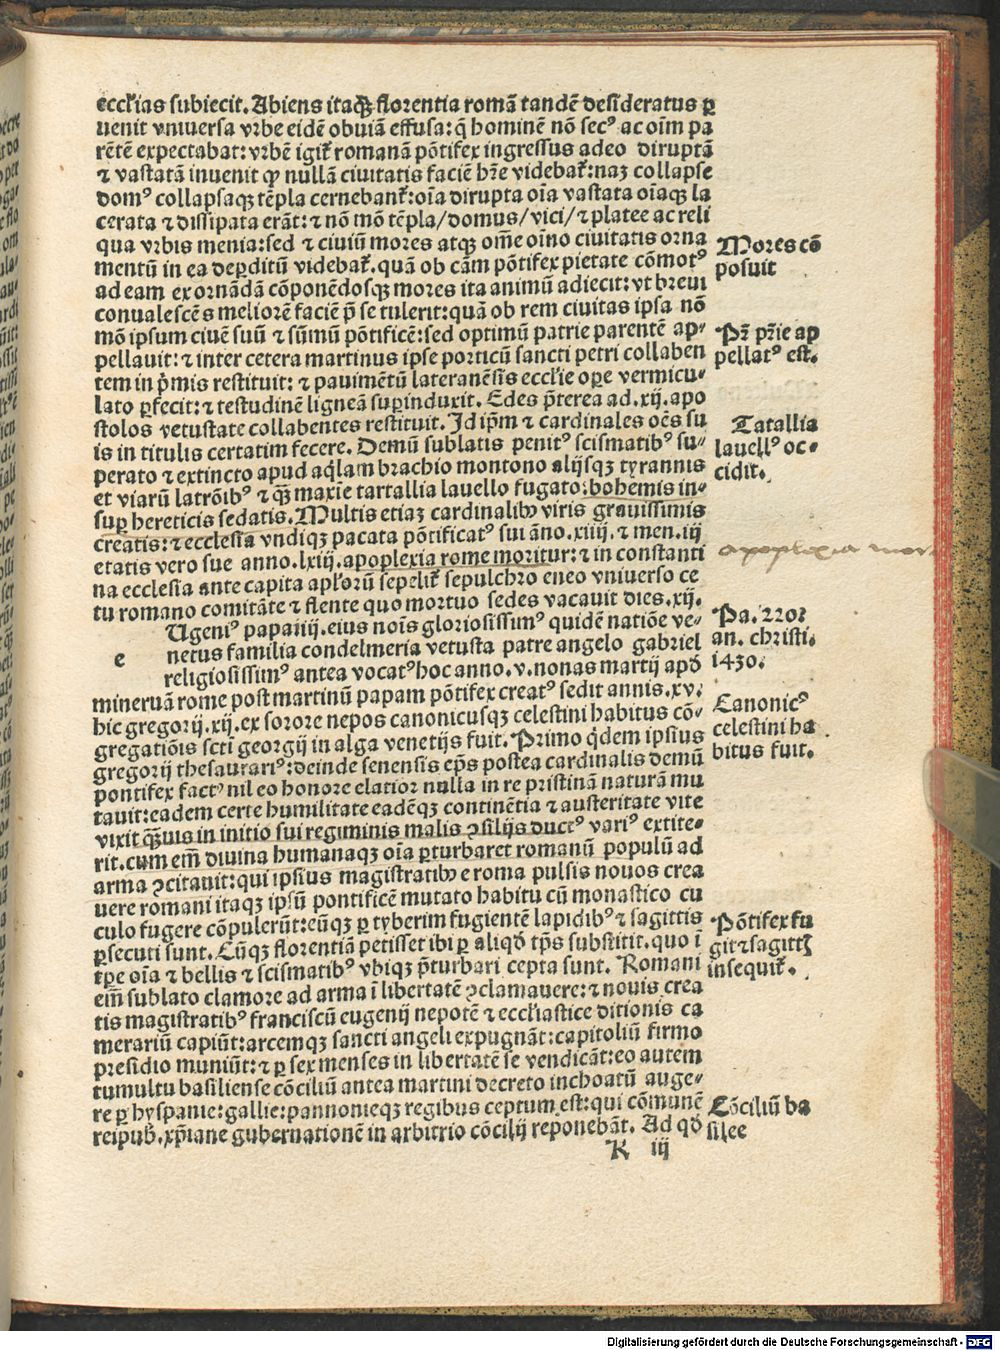 eccl'ias subiecit. Abiens itaq̃ florentia romã tandẽ desideratus ꝑ
uenit vniuersa vrbe eidẽ obuiã effusa: q̃ hominẽ nõ secꝰ ac oĩm pa
rẽtẽ expectabat: vrbẽ igit̃ romanã põtifex ingressus adeo diruptã
⁊ vastatã inuenit ꝙ nullã ciuitatis faciẽ hr̃e videbat̃: naꝫ collapse
domꝰ collapsaqꝫ tẽpla cernebant̃: oĩa dirupta oĩa vastata oĩaqꝫ la
cerata ⁊ dissipata erãt: ⁊ nõ mõ tẽpla/domus/vici/⁊ platee ac reli
qua vrbis menia: sed ⁊ ciuiũ mores atqꝫ om̃e oĩno ciuitatis orna
mentũ in ea deꝑditũ videbat̃. quã ob cãm põtifex pietate cõmotꝰ
ad eam exornãdã cõponẽdosqꝫ mores ita animũ adiecit: vt breui
conualescẽs meliorẽ faciẽ p̃ se tulerit: quã ob rem ciuitas ipsa nõ
mõ ipsum ciuẽ suũ ⁊ sũmũ põtificẽ: sed optimũ patrie parentẽ ap⸗
pellauit: ⁊ inter cetera martinus ipse porticũ sancti petri collaben
tem in p̃mis restituit: ⁊ pauimẽtũ lateranẽsis eccl'ie oꝑe vermicu⸗
lato ꝑfecit: ⁊ testudinẽ ligneã suꝑinduxit. Edes p̃terea ad .xij. apo
stolos vetustate collabentes restituit. Id ip̃m ⁊ cardinales oẽs su
is in titulis certatim fecere. Demũ sublatis penitꝰ scismatibꝰ su⸗
perato ⁊ extincto apud aq̃lam brachio montono alijsqꝫ tyrannis
et viarũ latrõibꝰ ⁊ q̃ꝫ maxĩe tartallia lauello fugato: bohemis in⸗
suꝑ hereticis sedatis. Multis etiaꝫ cardinalibꝰ viris grauissimis
creatis: ⁊ ecclesia vndiqꝫ pacata põtificatꝰ sui ãno .xiiij. ⁊ men. iij
etatis vero sue anno .lxiij. apoplexia rome moritur: ⁊ in constanti
na ecclesia ante capita apl'orũ sepelit̃ sepulchro eneo vniuerso ce
tu romano comitãte ⁊ flente quo mortuo sedes vacauit dies .xij.
e Ugeniꝰ papa iiij. eius noĩs gloriosissimꝰ quidẽ natiõe ve⸗
netus familia condelmeria vetusta patre angelo gabriel
religiosissimꝰ antea vocatꝰ hoc anno .v. nonas martij apđ
mineruã rome post martinũ papam põtifex creatꝰ sedit annis .xv.
hic gregorij .xij. ex sorore nepos canonicusqꝫ celestini habitus cõ⸗
gregatiõis scti georgij in alga venetijs fuit. Primo q̃dem ipsius
gregorij thesaurariꝰ: deinde senensis ep̃s postea cardinalis demũ
pontifex factꝰ nil eo honore elatior nulla in re pristinã naturã mu
tauit: eadem certe humilitate eadẽqꝫ continẽtia ⁊ austeritate vite
vixit q̃ꝫuis in initio sui regiminis malis ꝯsilijs ductꝰ variꝰ extite⸗
rit. cum em̃ diuina humanaqꝫ oĩa ꝑturbaret romanũ populũ ad
arma ꝯcitauit: qui ipsius magistratibꝰ e roma pulsis nouos crea
uere romani itaqꝫ ipsũ pontificẽ mutato habitu cũ monastico cu
culo fugere cõpulerũt: eũqꝫ ꝑ tyberim fugientẽ lapidibꝰ ⁊ sagittis
ꝑsecuti sunt. Cũqꝫ florentiã petisset ibi ꝑ aliqđ tp̃s substitit. quo ĩ
tꝑe oĩa ⁊ bellis ⁊ scismatibꝰ vbiqꝫ p̃turbari cepta sunt. Romani
em̃ sublato clamore ad arma ĩ libertatẽ ꝯclamauere: ⁊ nouis crea
tis magistratibꝰ franciscũ eugenij nepotẽ ⁊ eccl'iastice ditionis ca
merariũ capiũt: arcemqꝫ sancti angeli expugnãt: capitoliũ firmo
presidio muniũt: ⁊ ꝑ sex menses in libertatẽ se vendicãt: eo autem
tumultu basiliense cõciliũ antea martini decreto inchoatũ auge⸗
re ꝑ hyspanie: gallie: pannonieqꝫ regibus ceptum est: qui cõmunẽ
reipub̃. xp̃iane gubernationẽ in arbitrio cõcilij reponebãt. Ad qđ
K iij
Mores cõ
posuit
Pr̃ pr̃ie ap
pellatꝰ est.
Tatallia
lauellꝰ oc⸗
cidit.
apoplexia mor
Pa. 220
an. christi.
1430.
Canonicꝰ
celestini ha
bitus fuit.
Põtifex fu
git ⁊ sagittꝭ
insequit̃.
Cõciliũ ba
silee
Digitalisierung gefördert durch die Deutsche Forschungsgemeinschaft - DFG